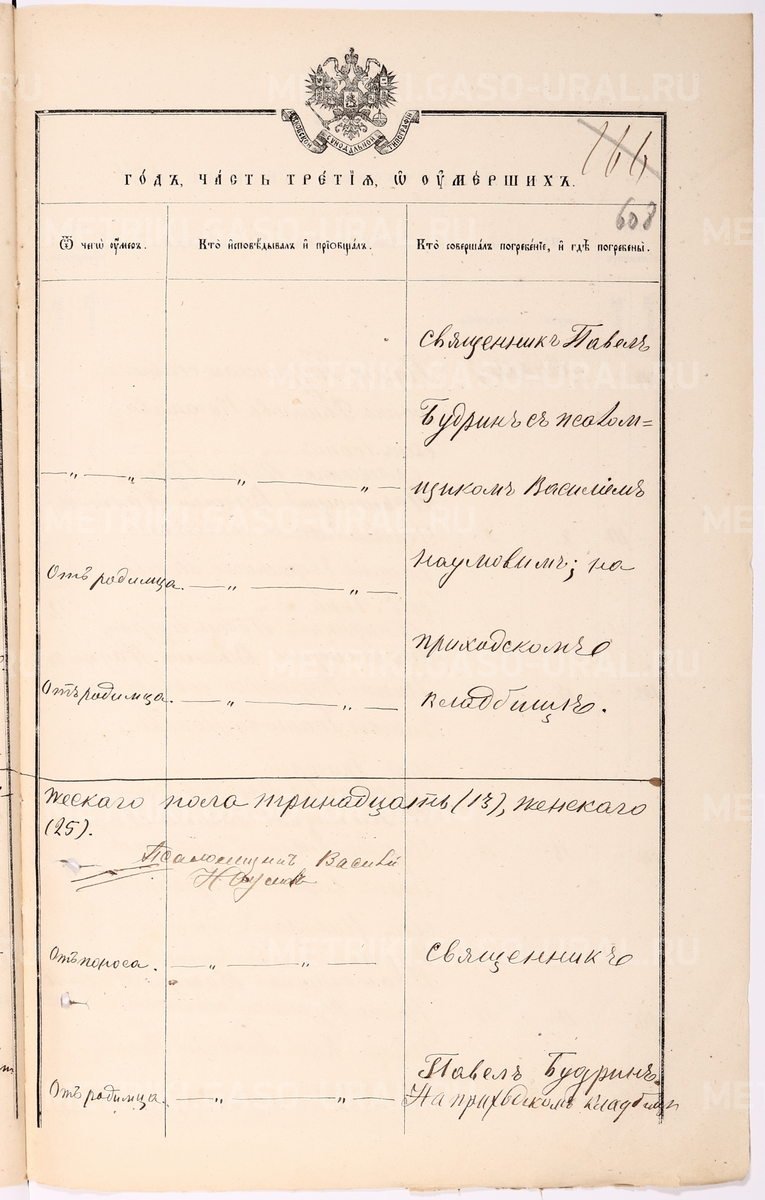 166
МОСКОВСКОЙ СѴНОДАЛЬНОЙ ТИПОГРАФІИ
608
ГОДЪ, ЧАСТЬ ТРЕТІЯ, Ѿ ОУМЕРШИХЪ.
Ѿ чегѡ оумеръ.
Кто исповѣдывалъ и пріобщалъ.
Кто совершалъ погребеніе, и гдѣ погребены.
священникъ Павелъ
Будринъ съ псалом=
— „ — „ — „ — „ —
щикомъ Василіемъ
Наумовымъ; на
Отъ родимца. — „ — „ —
приходскомъ
Отъ родимца. — „ — „ —
кладбищѣ.
жескаго пола тринадцать (13), женскаго
(25).
Псаломщикъ Василій
Наумовъ
Отъ поноса. — „ — „ —
священникъ
Павелъ Будринъ.
Отъ родимца. — „ — „ —
На приходскомъ кладбищѣ
METRIKI.GASO-URAL.RU